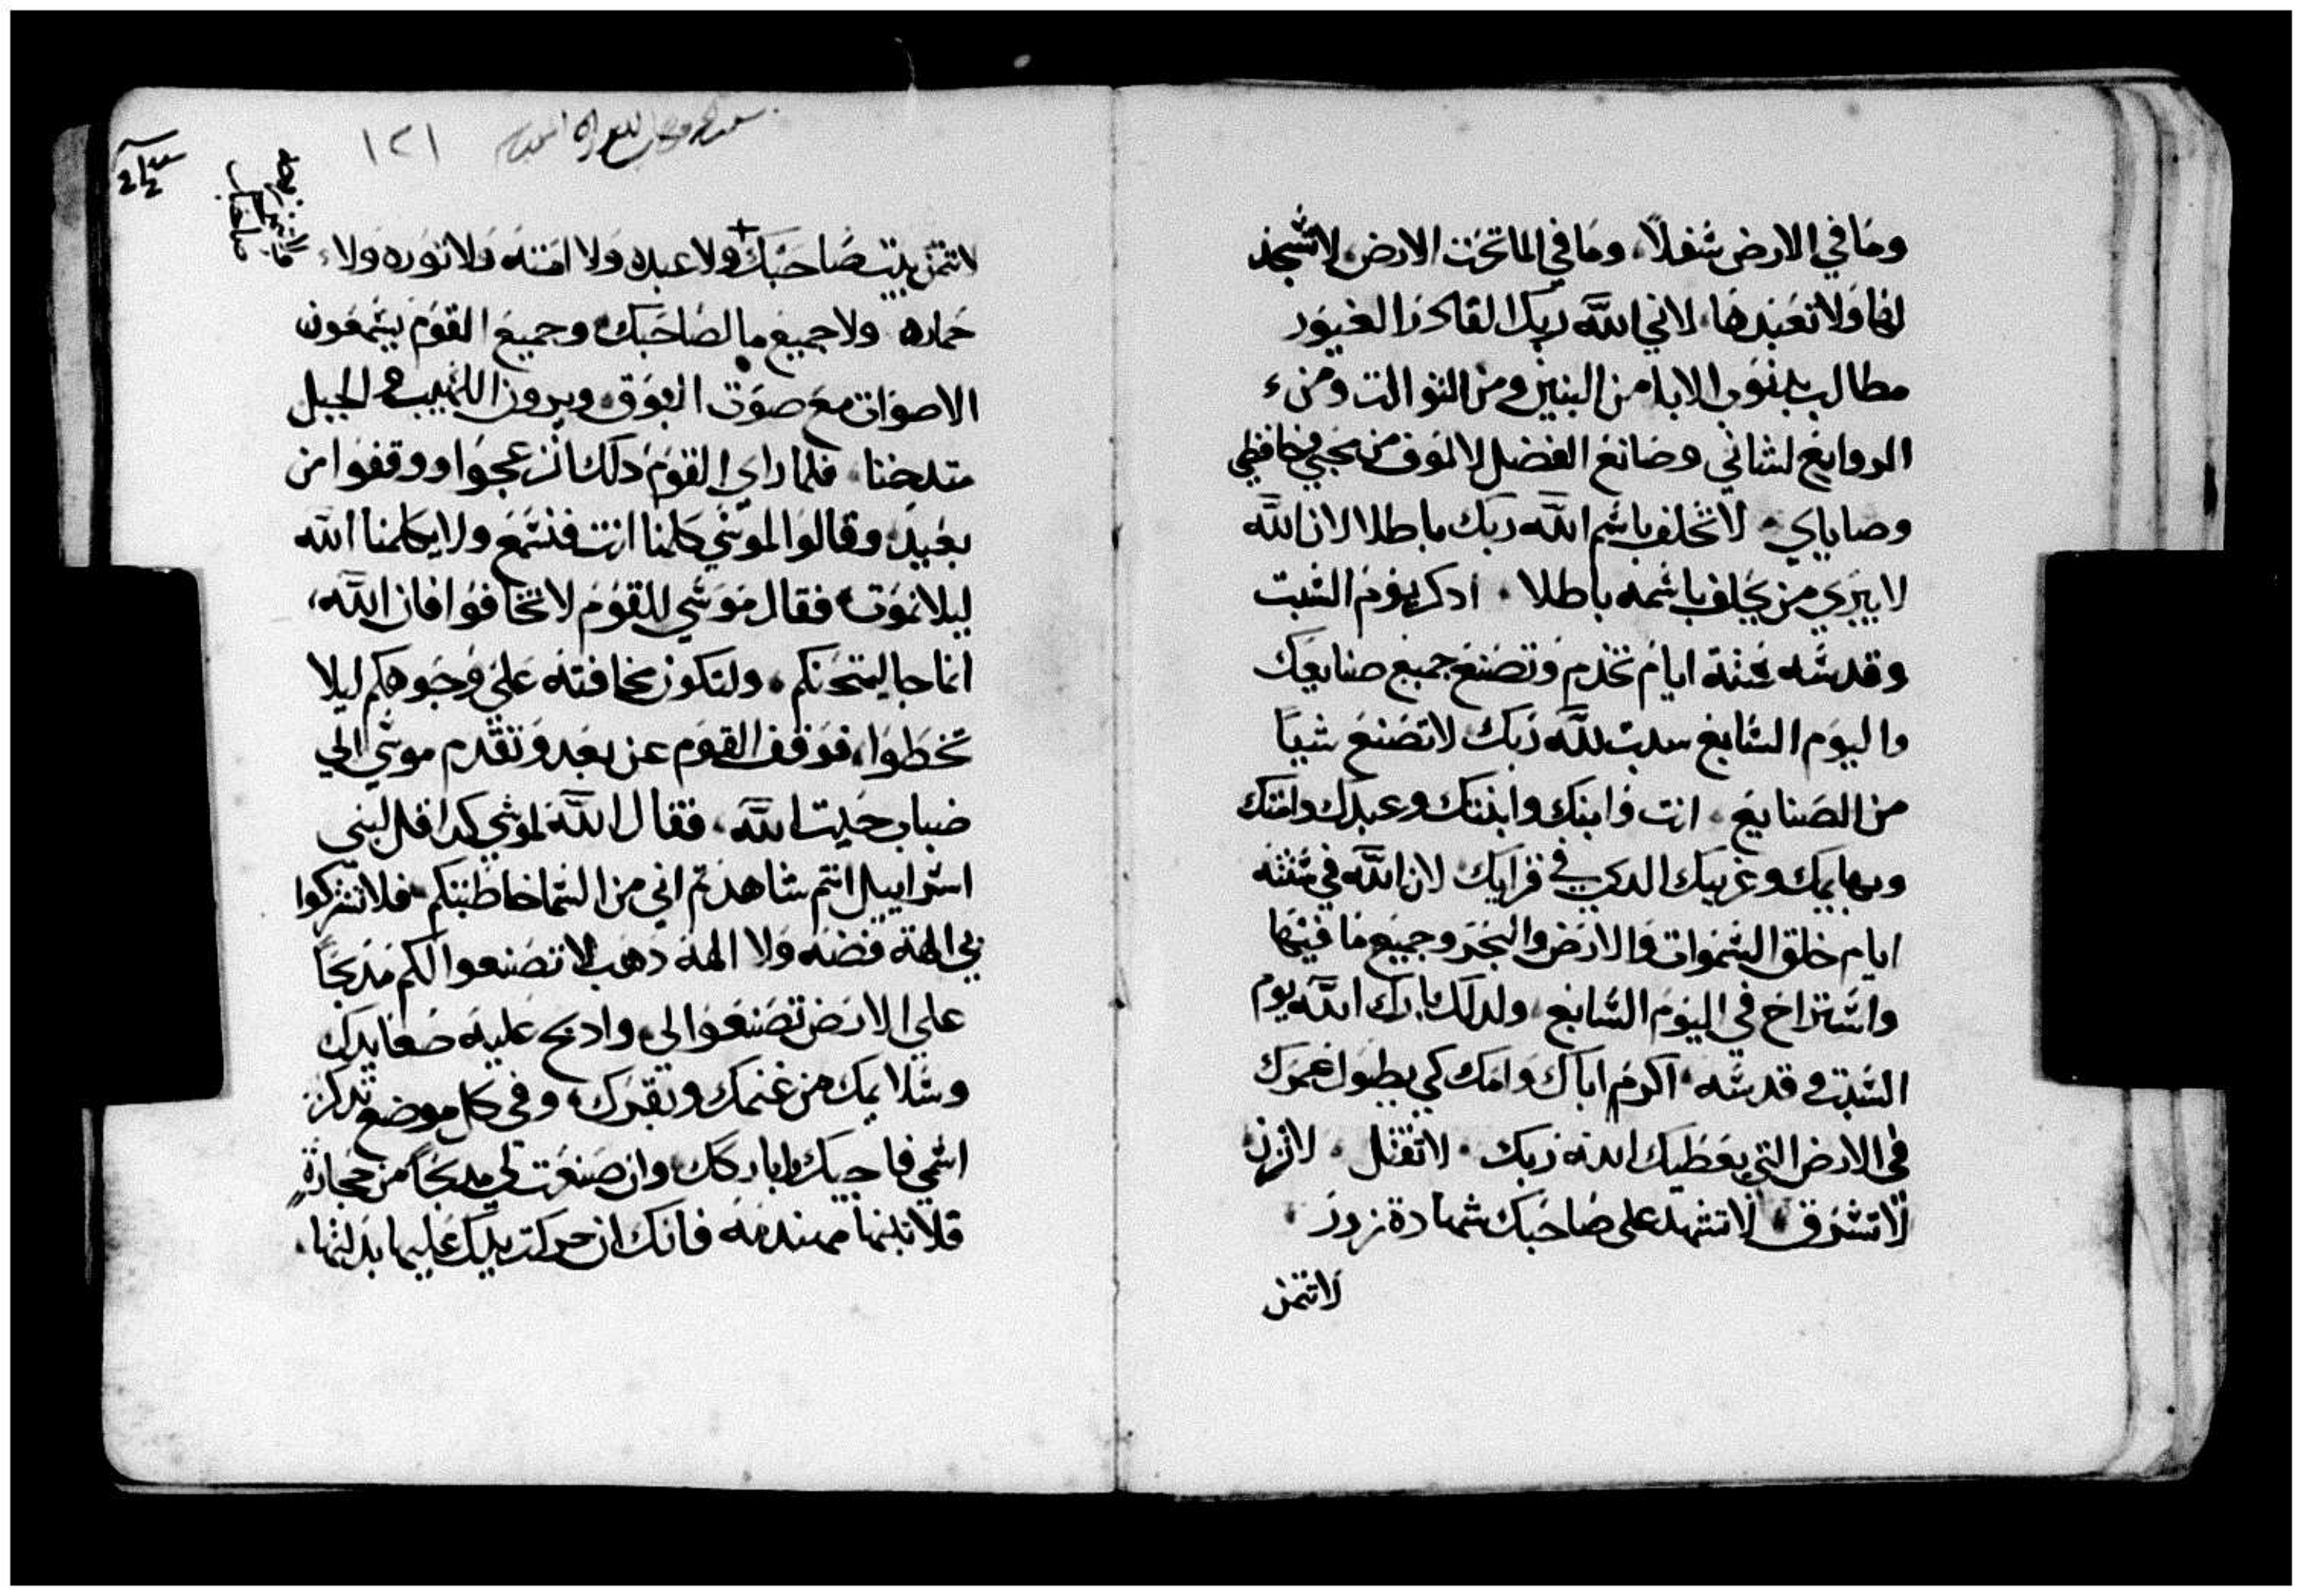 وما في الارض سفلا، وما في الما تحت الارض لا تسجد
لها ولا تعبدها، لاني الله ربك القادر الغيور
مطالب بدنوب الابا من البنين ومن التوالت ومن
الروابع لشاني وصانع الفضل لالوف من محبي وحافظي
وصاياي. لا تحلف باسم الله ربك باطلا لان الله
لا يبري من يحلف باسمه باطلا. ادكر يوم السبت
وقدسه ستة ايام تخدم وتصنع جميع صنايعك
واليوم السابع سبت لله ربك لا تصنع شيا
من الصنايع. انت وابنك وابنتك وعبدك وامتك
وبهايمك وغريبك الدي في قراك لان الله في ستة
ايام خلق السموات والارض والبحر وجميع ما فيها
واستراح في اليوم السابع، ولدلك بارك الله يوم
السبت وقدسه. اكرم اباك وامك كي يطول عمرك
في الارض التي يعطيك الله ربك. لا تقتل. لا تزن
لا تسرق. لا تشهد على صاحبك شهادة زور.
لا تتمن
١٢١
لا تتمن بيت صاحبك + ولا عبده ولا امته ولا توره ولا
حماره ولا جميع ما لصاحبك وجميع القوم يسمعون
الاصوات مع صوت البوق ويرون اللهيب والجبل
متدخنا. فلما راي القوم دلك انزعجوا ووقفوا من
بعيد، وقالوا لموسي كلمنا انت فنسمع ولا يكلمنا الله
ليلا نموت، فقال موسي للقوم لا تخافوا فان الله
انما جا ليمتحنكم. ولتكون مخافته علي وجوهكم ليلا
تخطوا، فوقف القوم عن بعد وتقدم موسي الي
ضباب حيت الله، فقال الله لموسي كدا قل لبني
اسراييل انتم شاهدتم اني من السما خاطبتكم فلا تشركوا
بي الهة فضه ولا الهة دهب لا تصنعوا لكم مدبحا
علي الارض تصنعوا لي وادبح عليه صعايدك
وسلايمك من غنمك وبقرك وفي كل موضع تدكر
اسمي فاجيك واباركك وان صنعت لي مدبحا من حجارة
فلا تبنها مهندمة فانك ان حركت يدك عليها بدلتها.